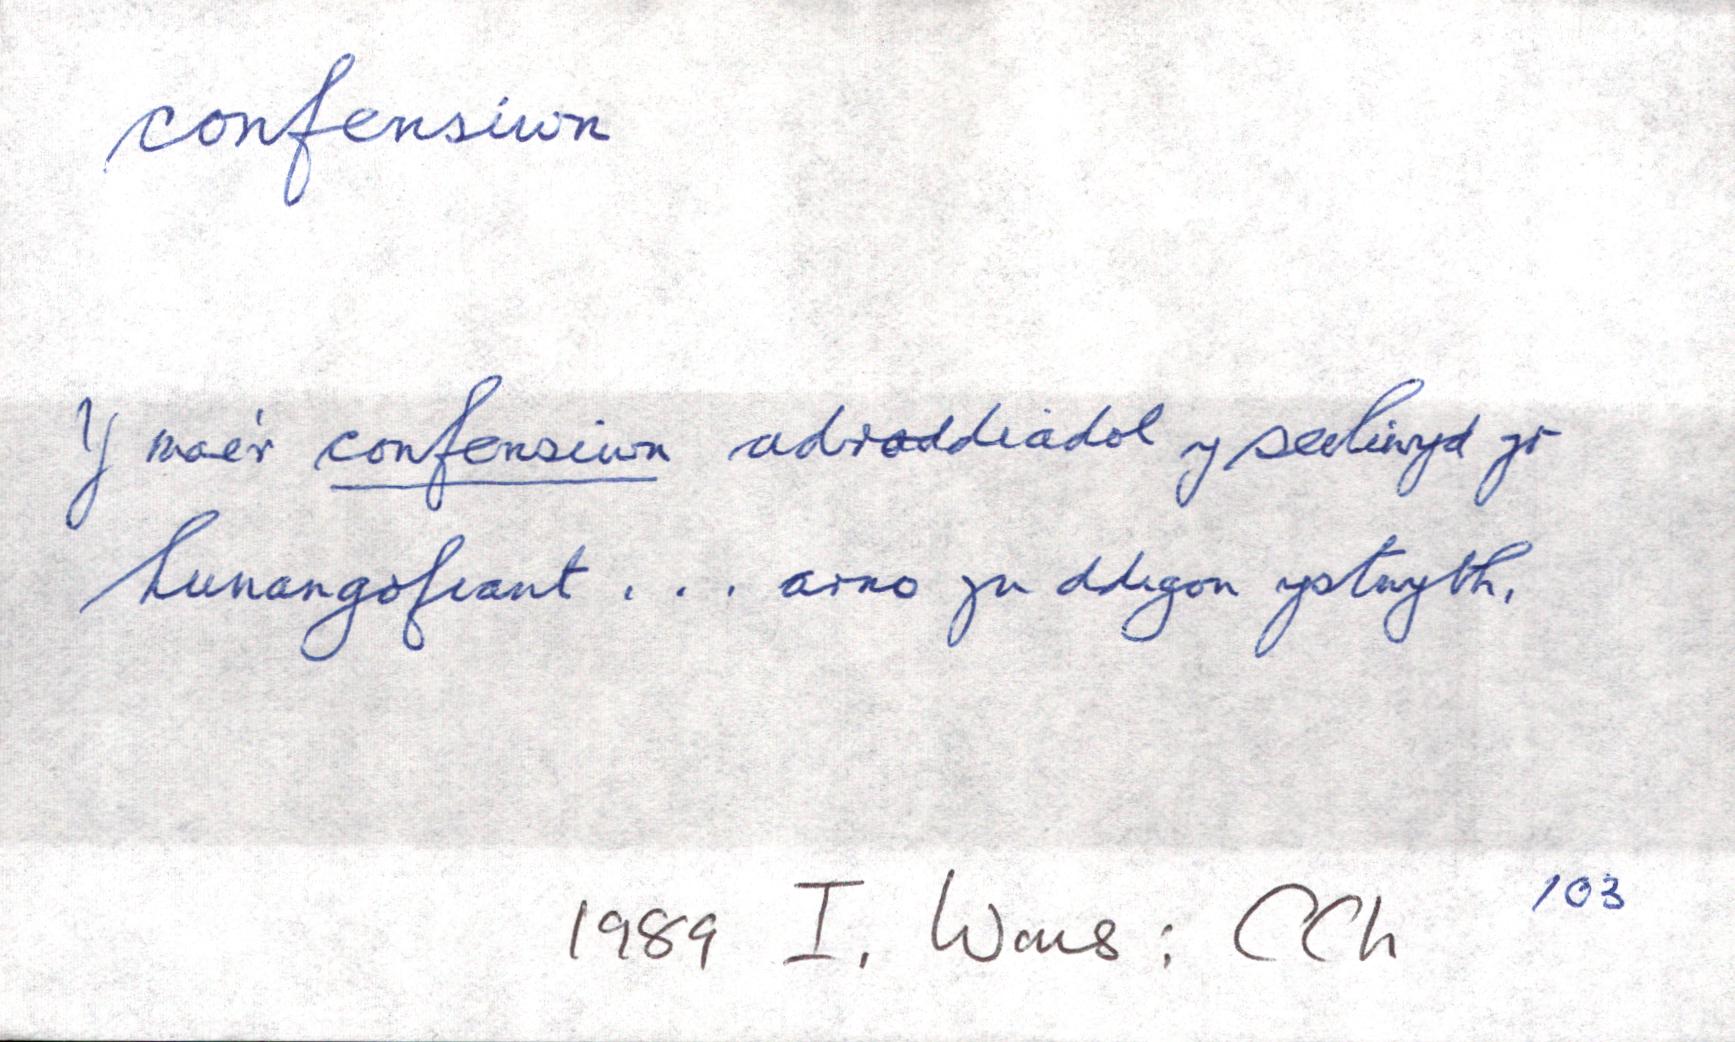 confensiwn
Y mae'r confensiwn adroddiadol y seiliwyd yr
hunangofiant . . . arno yn ddigon ystwyth.
103
1989 I. Wms : CCh